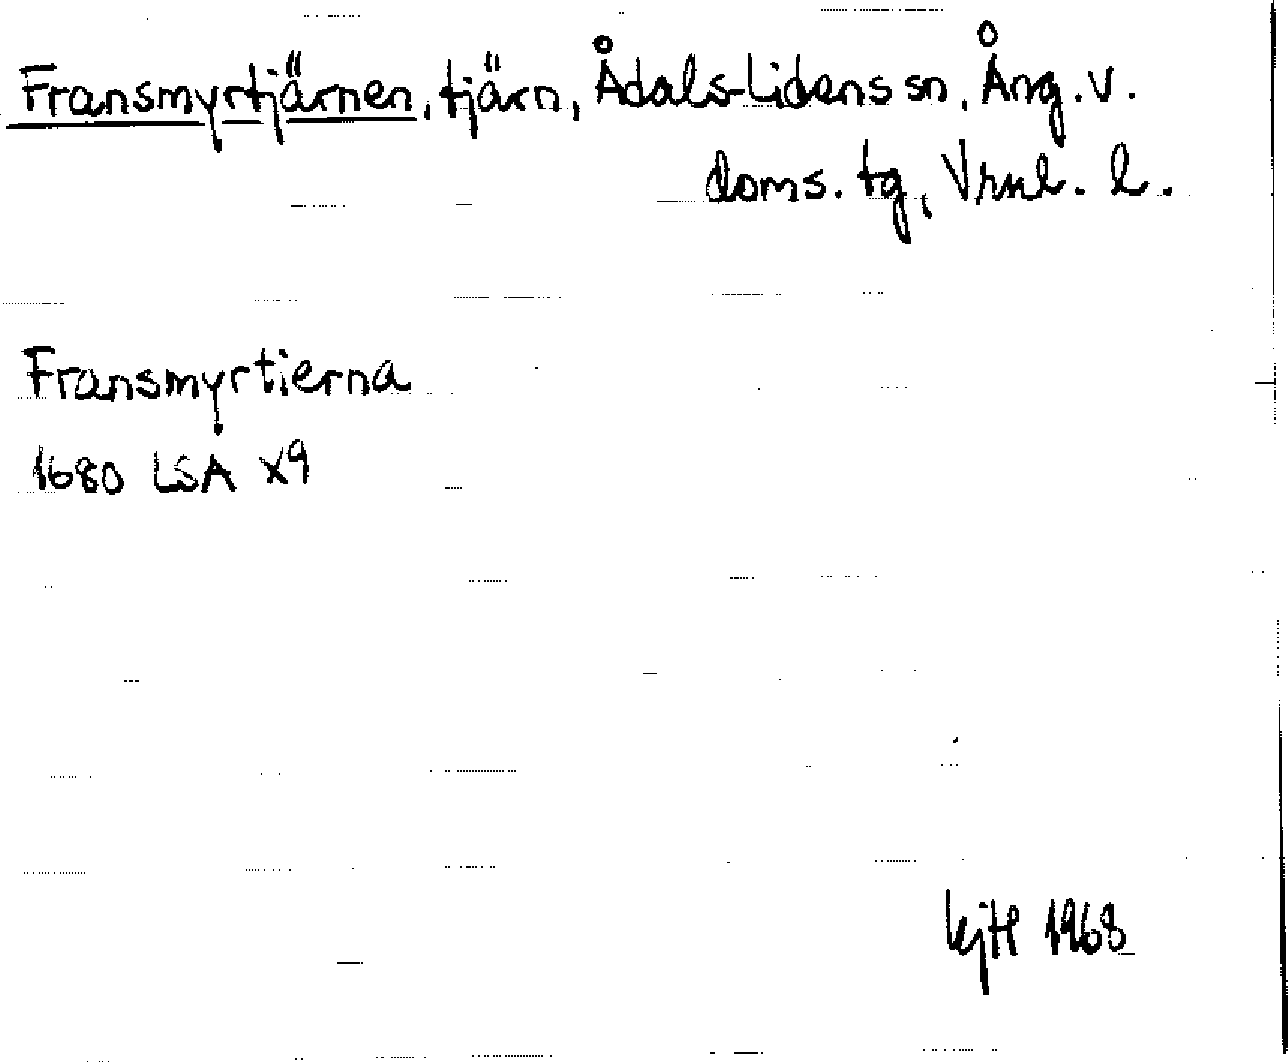 Fransmyrtjärnen, tjärn, Ådals-Lidens sn, Ång. v.
doms. tg, Vrnl. l.
Fransmyrtierna
1680 LSA X9
1968